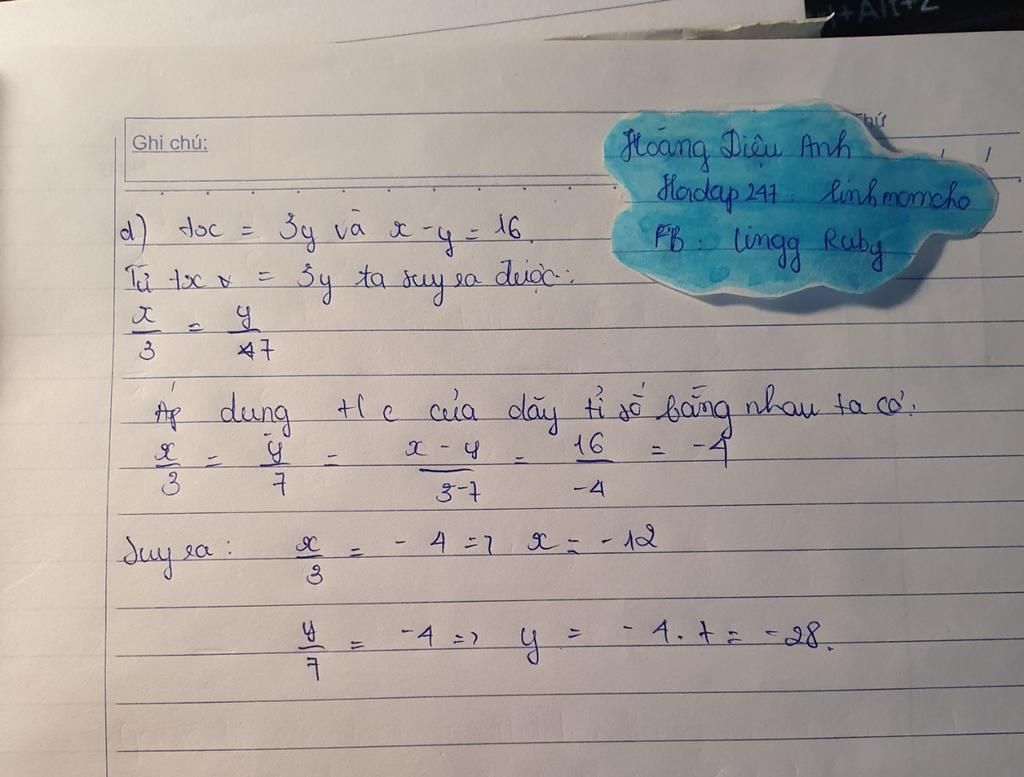 +Alt+Z
Ghi chú:
Thứ
Hoàng Diệu Anh
Hoidap247: linhmomcho
FB: Lingg Ruby
d) 7x = 3y và x - y = 16.
Từ 7x = 3y ta suy ra được:
x/3 = y/7
Áp dung t/c của dãy tỉ số bằng nhau ta có:
x/3 = y/7 = x - y/3-7 = 16/-4 = -4
Suy ra: x/3 = -4 => x = -12
y/7 = -4 => y = -4.7 = -28.